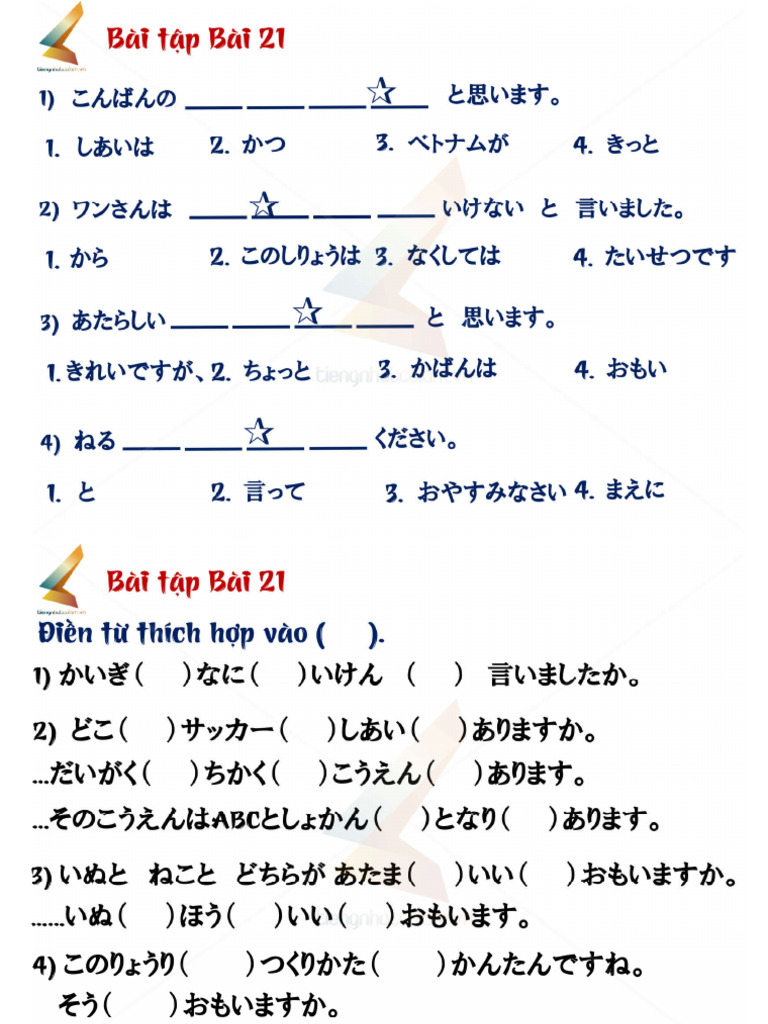 Bài tập Bài 21
1) こんばんの ____ ____ ____ __☆__ と思います。
1. しあいは 2. かつ 3. ベトナムが 4. きっと
2) ワンさんは ____ __☆__ ____ ____ いけない と 言いました。
1. から 2. このしりょうは 3. なくしては 4. たいせつです
3) あたらしい ____ ____ __☆__ ____ と 思います。
1.きれいですが、 2. ちょっと 3. かばんは 4. おもい
4) ねる ____ ____ __☆__ ____ ください。
1. と 2. 言って 3. おやすみなさい 4. まえに
Bài tập Bài 21
Điền từ thích hợp vào ( ).
1) かいぎ( )なに( )いけん ( ) 言いましたか。
2) どこ( )サッカー( )しあい( )ありますか。
...だいがく( )ちかく( )こうえん( )あります。
...そのこうえんはABCとしょかん( )となり( )あります。
3) いぬと ねこと どちらが あたま( )いい( )おもいますか。
......いぬ( )ほう( )いい( )おもいます。
4) このりょうり( )つくりかた( )かんたんですね。
そう( )おもいますか。